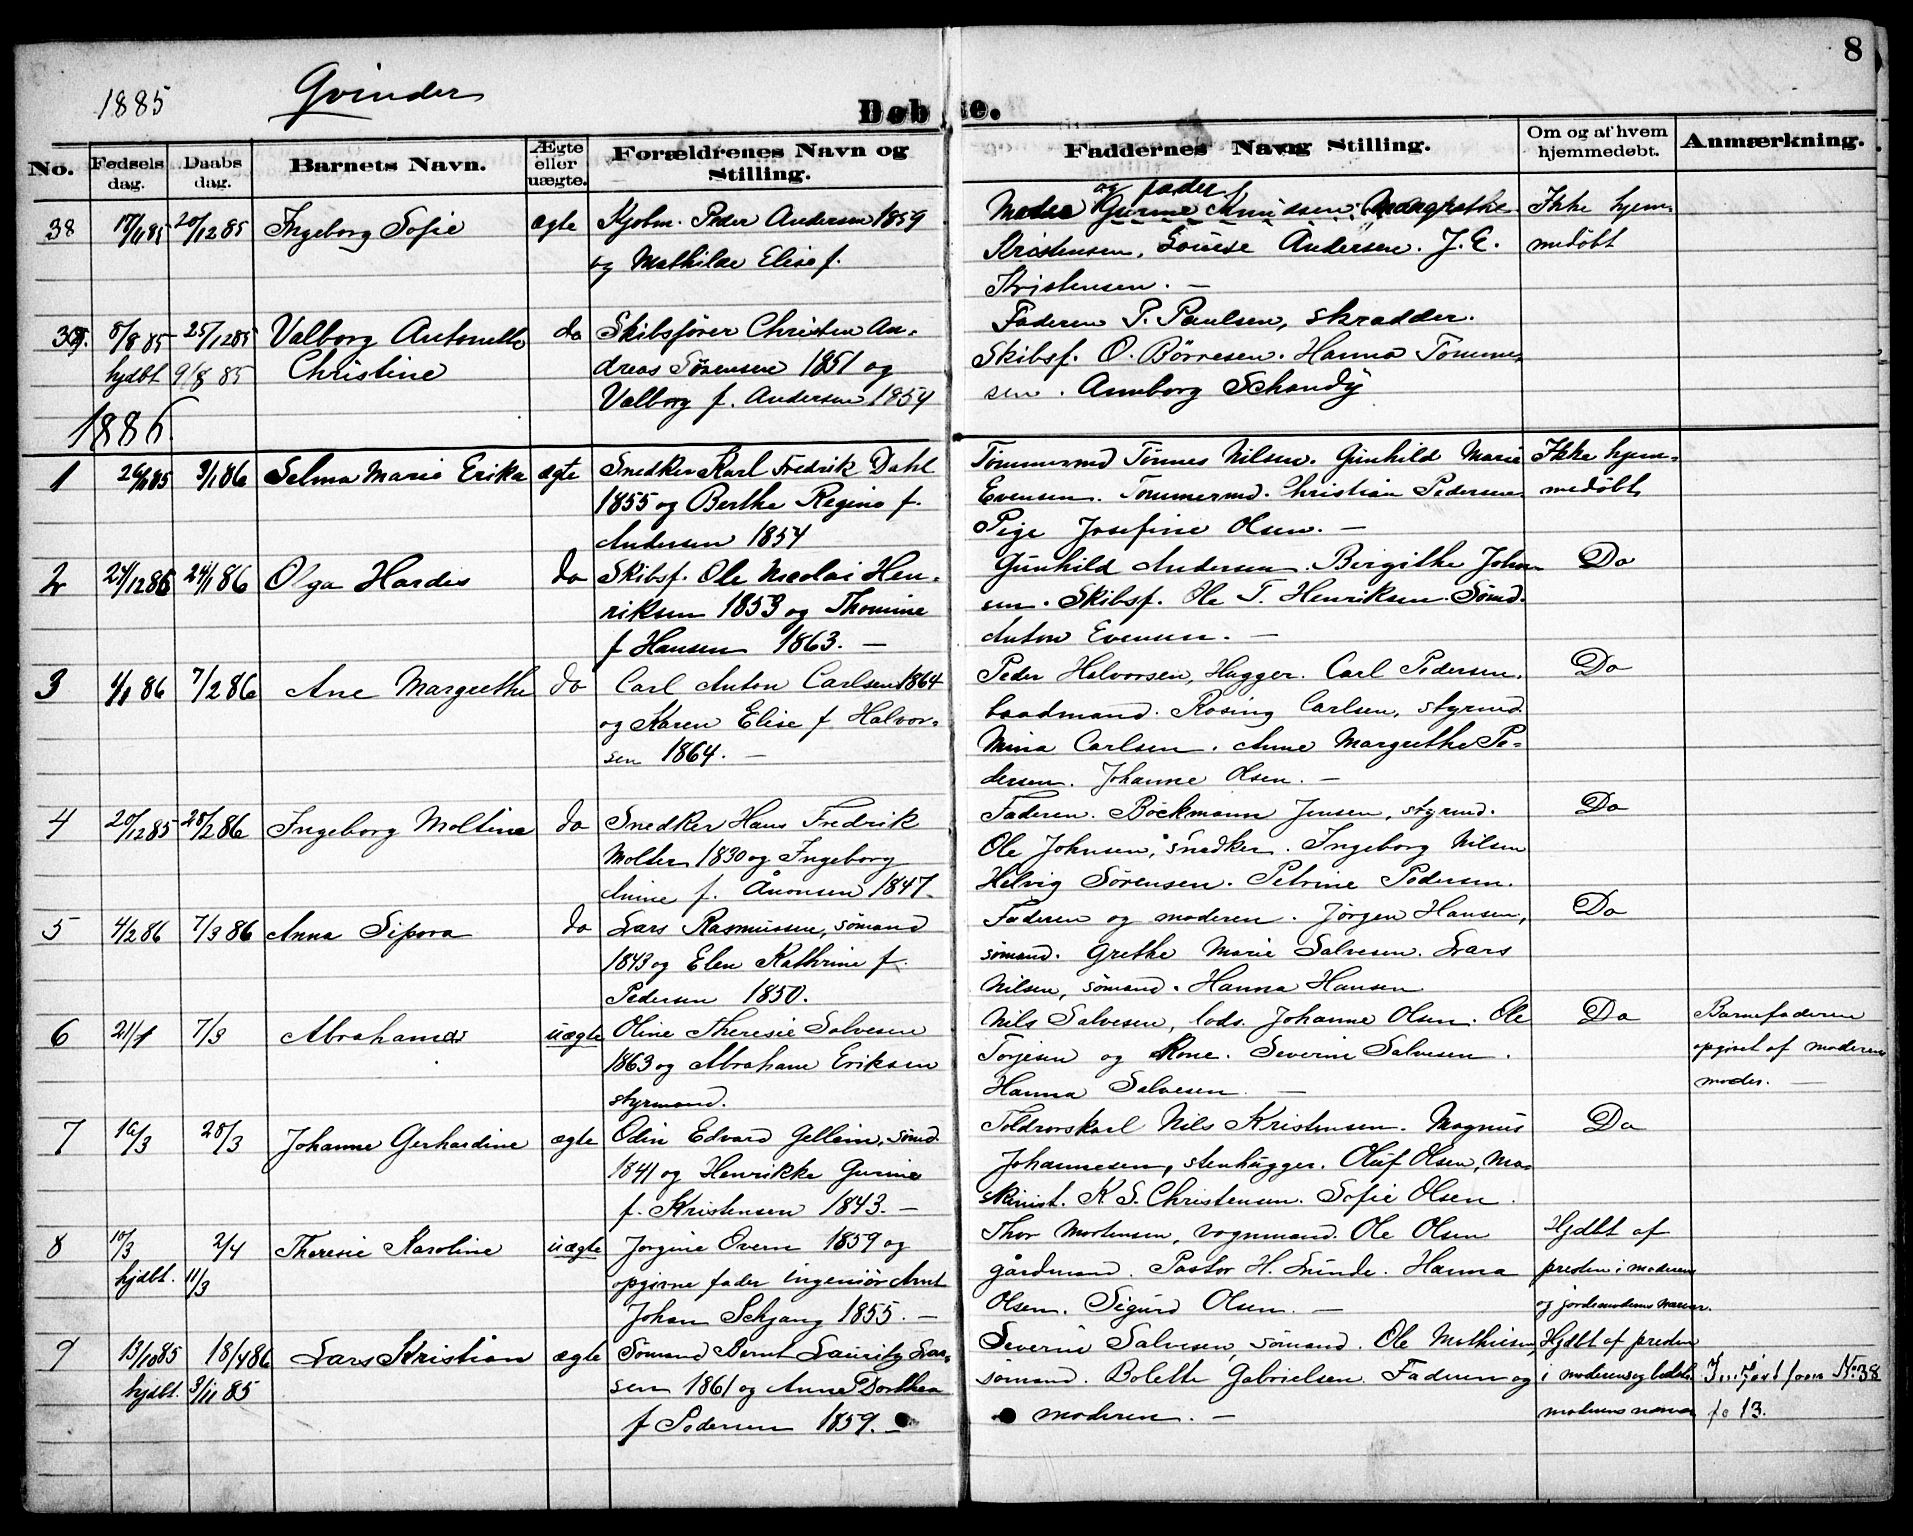 8
1885 Qvinder
Døbte.
No. Fødsels dag. Daabs dag. Barnets Navn. Ægte eller uægte. Forældrenes Navn og Stilling. Faddernes Navn og Stilling. Om og af hvem hjemmedøbt. Anmærkning.
38 20/12 85 Ingeborg Sofie ægte Kjøbm. Peder Andersen 1859
og Mathilde Elise f.
og fader
Moder Gurine Knudsen. Margrethe
Kristensen, Louise Andersen. J. E.
Kristensen. —
Ikke hjem-
medøbt
39. 8/8 85 25/12 85 Valborg Antonette do Skibsfører Christen An-
hjdbt 9/8 85 Christine dreas Sørensen 1851 og
Valborg f. Andersen 1854
Faderen P. Paulsen, skrædder.
Skibsf. O. Børresen. Hanna Tomme-
sen. Annborg Schandy
1886.
1 3/1 86 Selma Marie Erika ægte Snedker Karl Fredrik Dahl
1855 og Berthe Regine f.
Andersen 1854
Tømmermd Tønnes Nilsen. Gunhild Marie
Evensen. Tømmermd. Christian Pedersen
Pige Josefine Olsen. —
Ikke hjem-
medøbt
2 24/12 85 24/1 86 Olga Hardis do Skibsf. Ole Nicolai Hen-
riksen 1853 og Thomine
f Hansen 1863. —
Gunhild Andersen. Birgithe Johan-
sen. Skibsf. Ole T. Henriksen. Sømd.
Anton Evensen. —
Do
3 1/1 86 7/2 86 Ane Margrethe do Carl Anton Carlsen 1864
og Karen Elise f. Halvor-
sen 1864. —
Peder Halvorsen, Hugger. Carl Pedersen.
baadmand. Rosing Carlsen, styrmd.
Mina Carlsen. Anne Margrethe Pe-
dersen. Johanne Olsen. —
Do
4 20/12 85 28/2 86 Ingeborg Moltine do Snedker Hans Fredrik
Molter 1830 og Ingeborg
Anine f. Ånonsen 1847.
Faderen. Böckmann Jensen, styrmd.
Ole Johnsen, snedker. Ingeborg Nilsen
Helvig Sörensen. Petrine Pedersen.
Do
5 4/2 86 7/3 86 Anna Sipora do Lars Rasmussen, sømand
1843 og Elen Kathrine f.
Pedersen 1850.
Faderen og moderen. Jörgen Hansen,
sømand. Grethe Marie Salvesen. Lars
Nilsen, sømand. Hanna Hansen
Do
6 21/1 7/3 uægte Oline Theresie Salvesen
1863 og Abraham Eriksen
styrmand.
Nils Salvesen, lods. Johanne Olsen. Ole
Torjesen og Kone. Severin Salvesen.
Hanna Salvesen. —
Do
Barnefaderen
opgivet af moderens
moder. —
7 28/3 Johanne Gerhardine ægte Odin Edvard Gellein, sømd.
1841 og Henrikke Gurine
f. Kristensen 1843. —
Toldrorskarl Nils Kristensen. Magnus
Johannesen, stenhugger. Oluf Olsen, Ma-
skinist. K S. Christensen. Sofie Olsen.
Do
8 10/3 2/4 Theresie Karoline uægte Jorgine Oveen 1859 og
hjdbt. 11/3 opgivne fader ingeniör Arnt
Johan Schjang 1855. —
Thor Mortensen, vognmand. Ole Olsen
gårdmand. Pastor H. Lunde. Hanna
Olsen. Sigurd Olsen. —
Hjdbt af
presten i moderens
og jordemoderens nærvær.
9 13/10 85 18/4 86 Lars Kristian ægte Sømand Bernt Lauritz Lar-
hjdbt. 3/11 85 sen 1861 og Anne Dorthea
f Pedersen 1859. —
Severin Salvesen, sømand. Ole Mathisen,
sømand. Bolette Gabrielsen. Faderen og
moderen. —
Hjdbt af presten
i moderens og bedste-
moderens nærvær
Indført som No 38
fo 13.